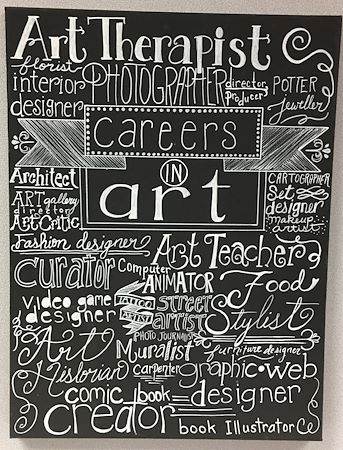 Art Therapist
florist
interior designer
PHOTOGRAPHER
director
Producer
POTTER
Jeweller
careers
IN
art
Architect
CARTOGRAPHER
ART gallery
director
Set
designer
Art Critic
makeup
artist
Fashion designer
Art Teacher
curator
Computer
ANIMATOR
Food
Stylist
video game
designer
TATTOO
ARTIST
street
artist
PHOTO JOURNALIST
Art
Historian
Muralist
furniture designer
carpenter
graphic • web
designer
comic book
creator
book Illustrator